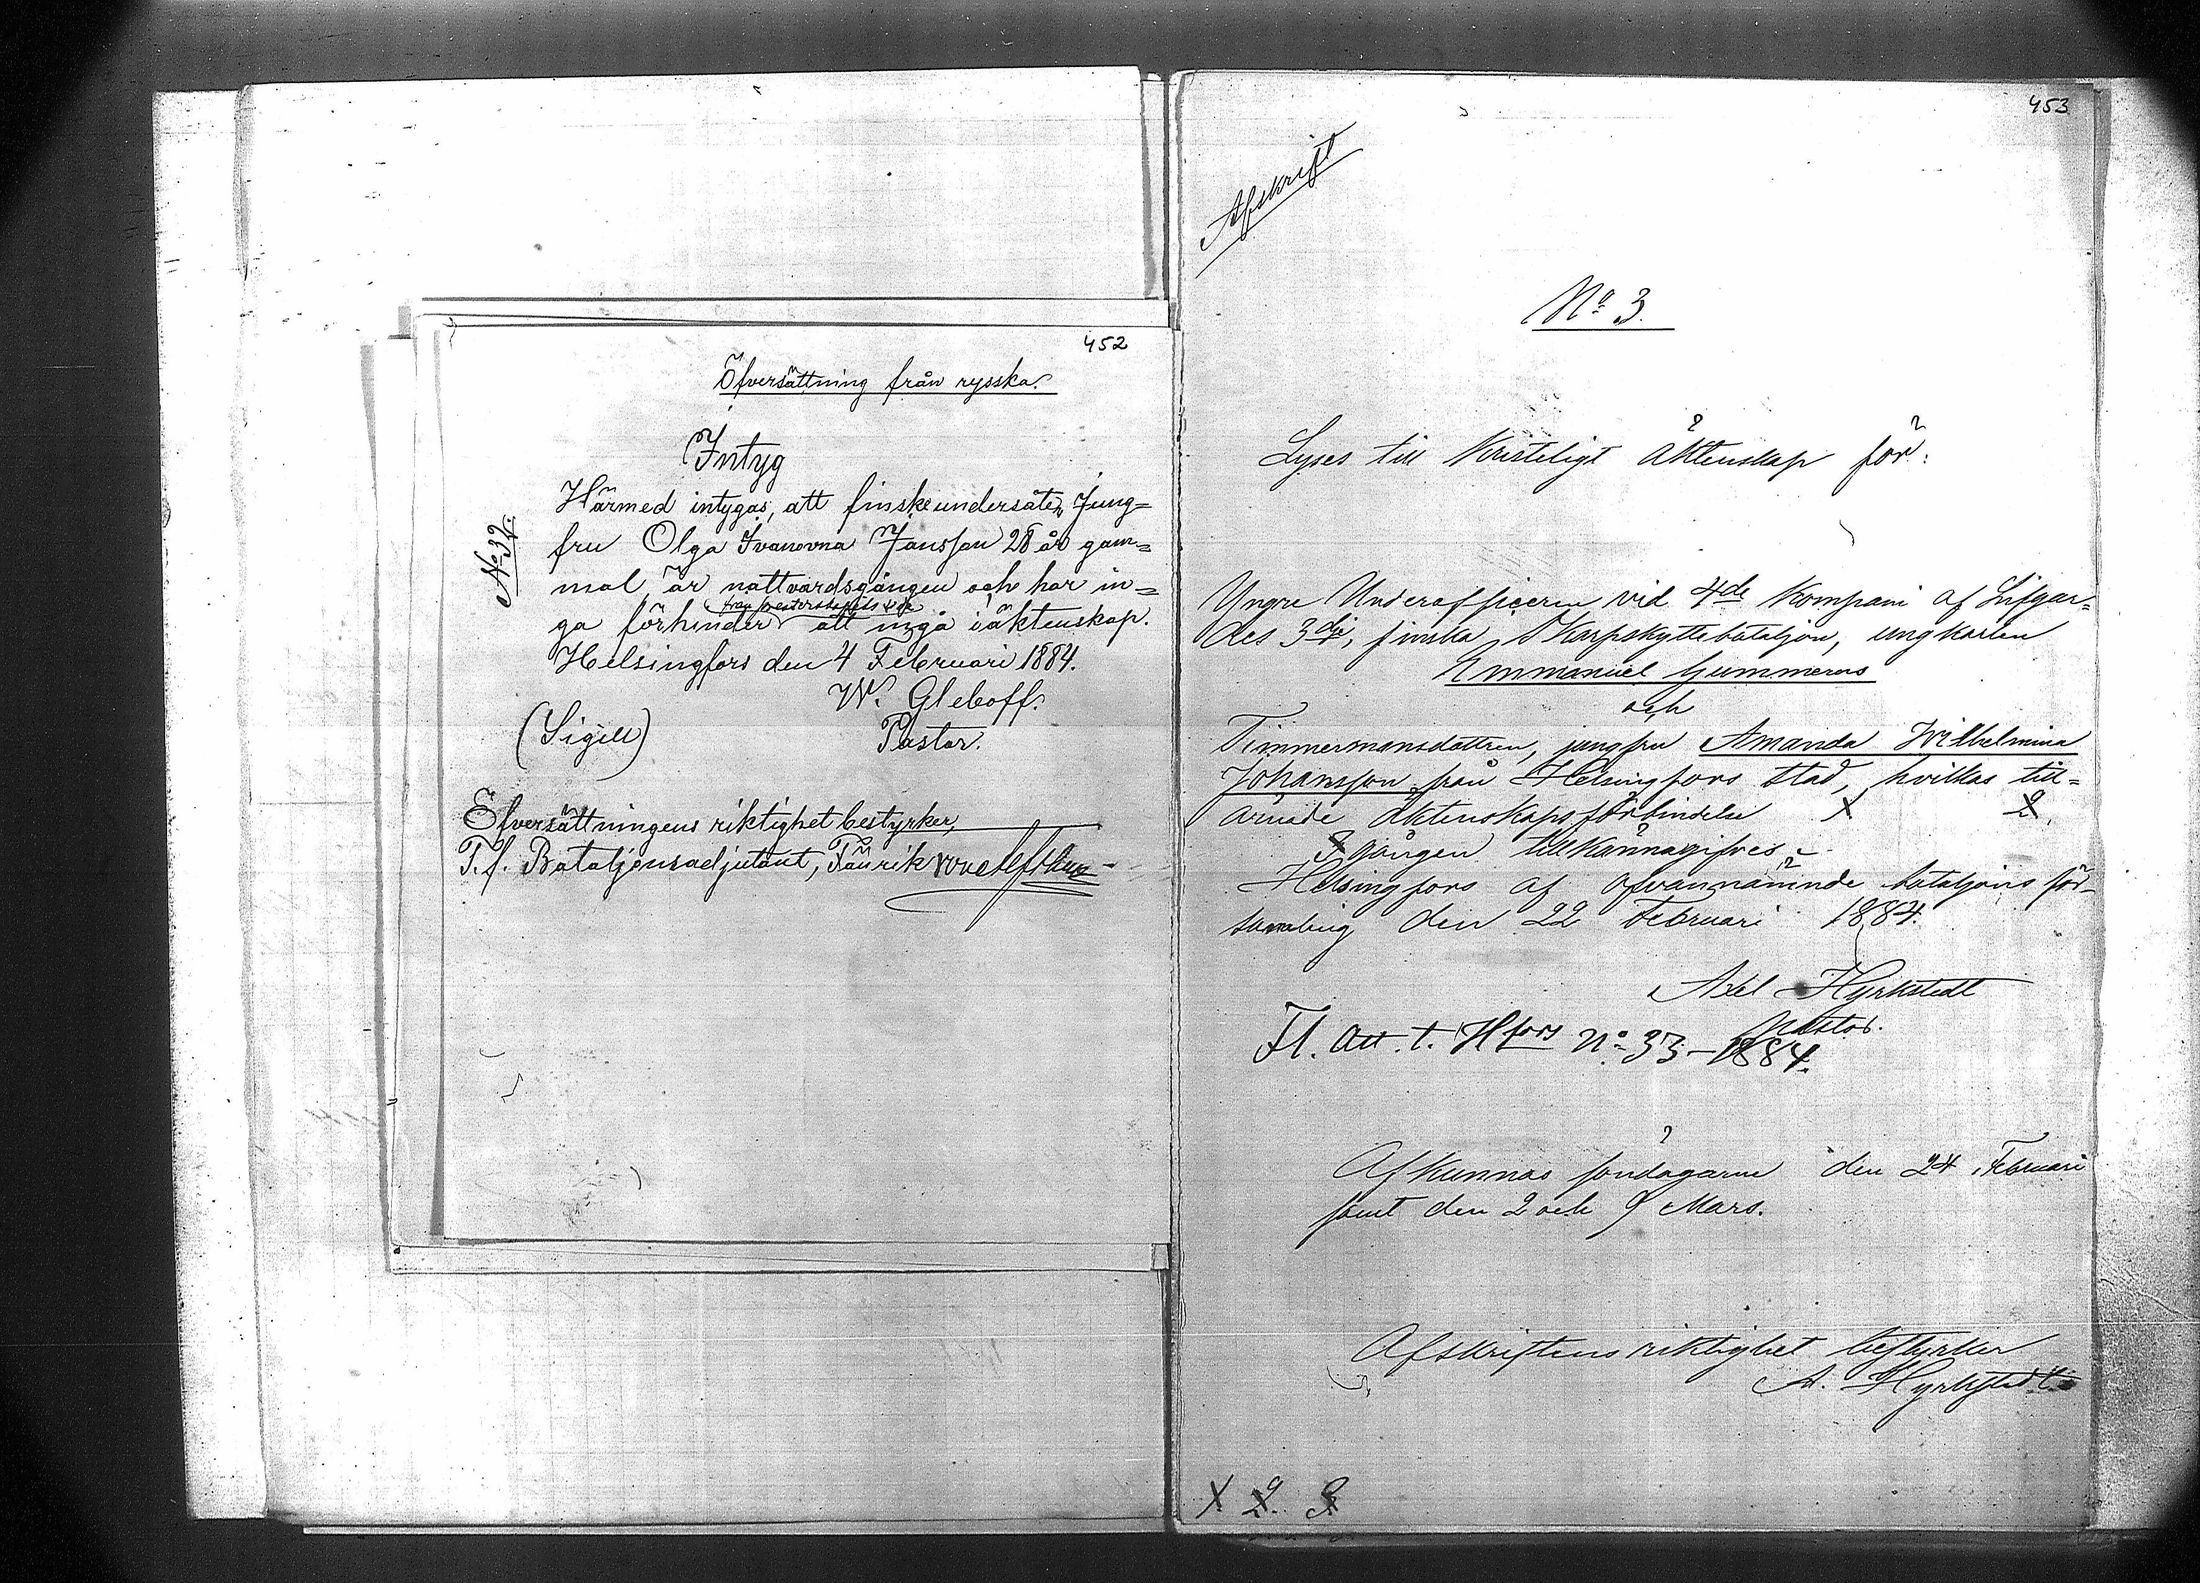 452
Öfversättning från rysska.
Intyg
No 32.
Härmed intygas, att finske undersåten Jung=
fru Olga Ivanovna Jansson 28 år gam=
mal, är nattvardsgången och har in=
från presterskapets sida
ga förhinder att ingå i äktenskap.
Helsingfors den 4 Februari 1884.
W. Gleboff.
(Sigill)
Pastor.
Efversättningens riktighet bestyrker,
T. f. Bataljonsadjutant, Fänrik
453
Afskrift
No 3.
Lyses till Kristeligt Äktenskap för:
Yngre Underofficeren vid 4de Kompani af Lifgar=
des 3dje, finska Skarpskyttebataljon, ungkarlen
Emmanuel Gummerus
och
Timmermansdottren, jungfru Amanda Wilhelmina
Johansson från Helsingfors stad, hvilkas till=
ärnade äktenskapsförbindelse X 2.
3 gången tillkännagifves.
Helsingfors af ofvannämnde bataljons för=
samling den 22 Februari 1884.
Axel Hyrkstedt
Pastor.
Fl. att. t. Hfors No 33-1884.
Afkunnas söndagarne den 24 Februari
samt den 2 och 9 Mars.
Afskriftens riktighet bestyrker
A. Hyrkstedt
X 2. 3